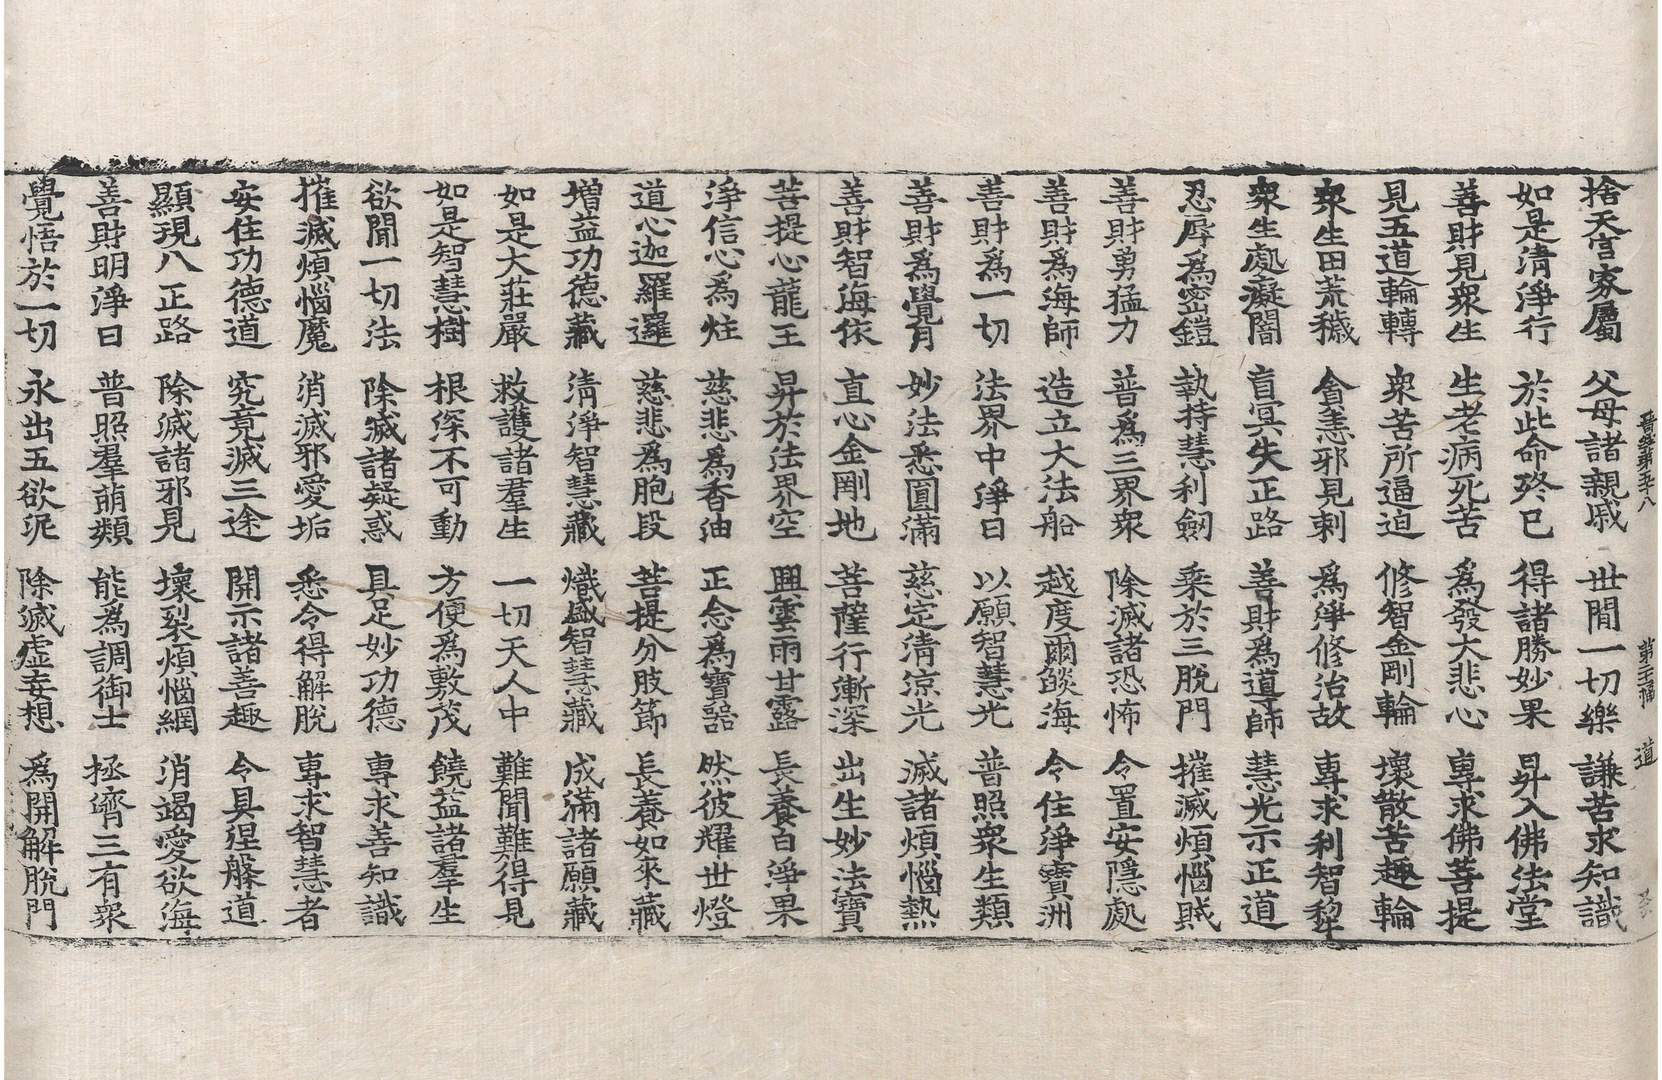 捨天官家屬 父母諸親戚 世間一切樂 謙苦求知識
如是清淨行 於此命終已 得諸勝妙果 昇入佛法堂
善財見衆生 生老病死苦 爲發大悲心 專求佛菩提
見五道輪轉 衆苦所逼迫 修智金剛輪 壞散苦趣輪
衆生田荒穢 貪恚邪見刺 爲淨修治故 專求利智犂
衆生處癡闇 盲冥失正路 善財爲導師 慧光示正道
忍辱爲密鎧 執持慧利劒 乘於三脫門 摧滅煩惱賊
善財勇猛力 普爲三界衆 除滅諸恐怖 令置安隱處
善財爲海師 造立大法船 越度爾燄海 令住淨寶洲
善財爲一切 法界中淨日 以願智慧光 普照衆生類
善財爲覺月 妙法悉圓滿 慈定淸涼光 滅諸煩惱熱
善財智海依 直心金剛地 菩薩行漸深 出生妙法寶
菩提心龍王 昇於法界空 興雲雨甘露 長養白淨果
淨信心爲炷 慈悲爲香油 正念爲寶器 然彼耀世燈
道心迦羅邏 慈悲爲胞段 菩提分肢節 長養如來藏
增益功德藏 淸淨智慧藏 熾盛智慧藏 成滿諸願藏
如是大莊嚴 救護諸羣生 一切天人中 難聞難得見
如是智慧樹 根深不可動 方便爲敷茂 饒益諸羣生
欲聞一切法 除滅諸疑惑 具足妙功德 專求善知識
摧滅煩惱魔 消滅邪愛垢 悉令得解脫 專求智慧者
安住功德道 究竟滅三途 開示諸善趣 令具涅槃道
顯現八正路 除滅諸邪見 壞裂煩惱網 消竭愛欲海
善財明淨日 普照羣萌類 能爲調御士 拯濟三有衆
覺悟於一切 永出五欲泥 除滅虛妄想 爲開解脫門
晋經第五十八 第二十 道